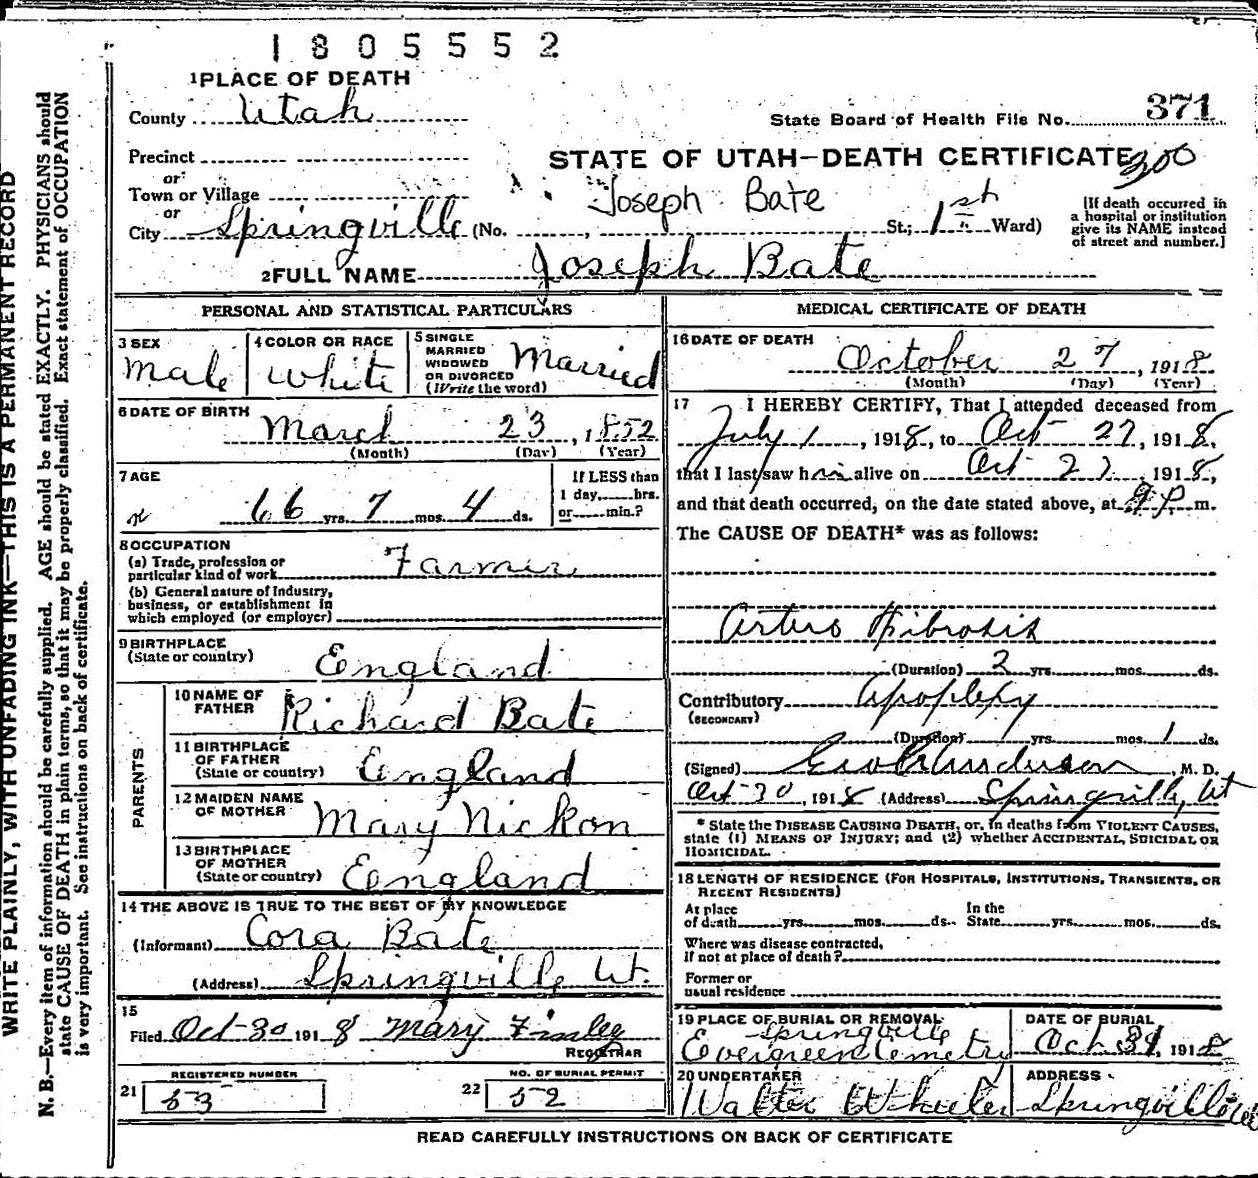 1805552
1 PLACE OF DEATH
County Utah
State Board of Health File No. 371
Precinct
or
Town or Village
or
City Springville (No. , St.; 1st Ward)
STATE OF UTAH—DEATH CERTIFICATE 300
Joseph Bate
[If death occurred in
a hospital or institution
give its NAME instead
of street and number.]
2 FULL NAME Joseph Bate
PERSONAL AND STATISTICAL PARTICULARS
3 SEX
Male
4 COLOR OR RACE
White
5 SINGLE
MARRIED
WIDOWED
OR DIVORCED
(Write the word)
Married
6 DATE OF BIRTH
March 23, 1852
(Month) (Day) (Year)
7 AGE
66 yrs. 7 mos. 4 ds.
If LESS than
1 day, hrs.
or min.?
8 OCCUPATION
(a) Trade, profession or
particular kind of work Farmer
(b) General nature of Industry,
business, or establishment in
which employed (or employer)
9 BIRTHPLACE
(State or country) England
PARENTS
10 NAME OF
FATHER Richard Bate
11 BIRTHPLACE
OF FATHER
(State or country) England
12 MAIDEN NAME
OF MOTHER Mary Nickon
13 BIRTHPLACE
OF MOTHER
(State or country) England
14 THE ABOVE IS TRUE TO THE BEST OF MY KNOWLEDGE
(Informant) Cora Bate
(Address) Springville Ut.
15
Filed Oct-30 1918 Mary Finley
REGISTRAR
REGISTERED NUMBER
21 53
NO. OF BURIAL PERMIT
22 52
MEDICAL CERTIFICATE OF DEATH
16 DATE OF DEATH
October 27, 1918
(Month) (Day) (Year)
17 I HEREBY CERTIFY, That I attended deceased from
July 1, 1918, to Oct 27, 1918,
that I last saw him alive on Oct 27 1918,
and that death occurred, on the date stated above, at 9 P. m.
The CAUSE OF DEATH* was as follows:
Arterio Fibrosis
(Duration) 2 yrs. mos. ds.
Contributory Apoplexy
(SECONDARY)
(Duration) yrs. mos. 1 ds.
(Signed) Anderson, M. D.
Oct-30, 1918 (Address) Springville, Ut
* State the DISEASE CAUSING DEATH, or, in deaths from VIOLENT CAUSES,
state (1) MEANS OF INJURY; and (2) whether ACCIDENTAL, SUICIDAL OR
HOMICIDAL.
18 LENGTH OF RESIDENCE (FOR HOSPITALS, INSTITUTIONS, TRANSIENTS, OR
RECENT RESIDENTS)
At place
of death yrs. mos. ds.
In the
State yrs. mos. ds.
Where was disease contracted,
if not at place of death?
Former or
usual residence
19 PLACE OF BURIAL OR REMOVAL
Springville
Evergreen Cemetry
DATE OF BURIAL
Oct. 31, 1918
20 UNDERTAKER
Walter Wheeler
ADDRESS
Springville
READ CAREFULLY INSTRUCTIONS ON BACK OF CERTIFICATE
WRITE PLAINLY, WITH UNFADING INK—THIS IS A PERMANENT RECORD
N. B.—Every item of information should be carefully supplied. AGE should be stated EXACTLY. PHYSICIANS should
state CAUSE OF DEATH in plain terms, so that it may be properly classified. Exact statement of OCCUPATION
is very important. See instructions on back of certificate.